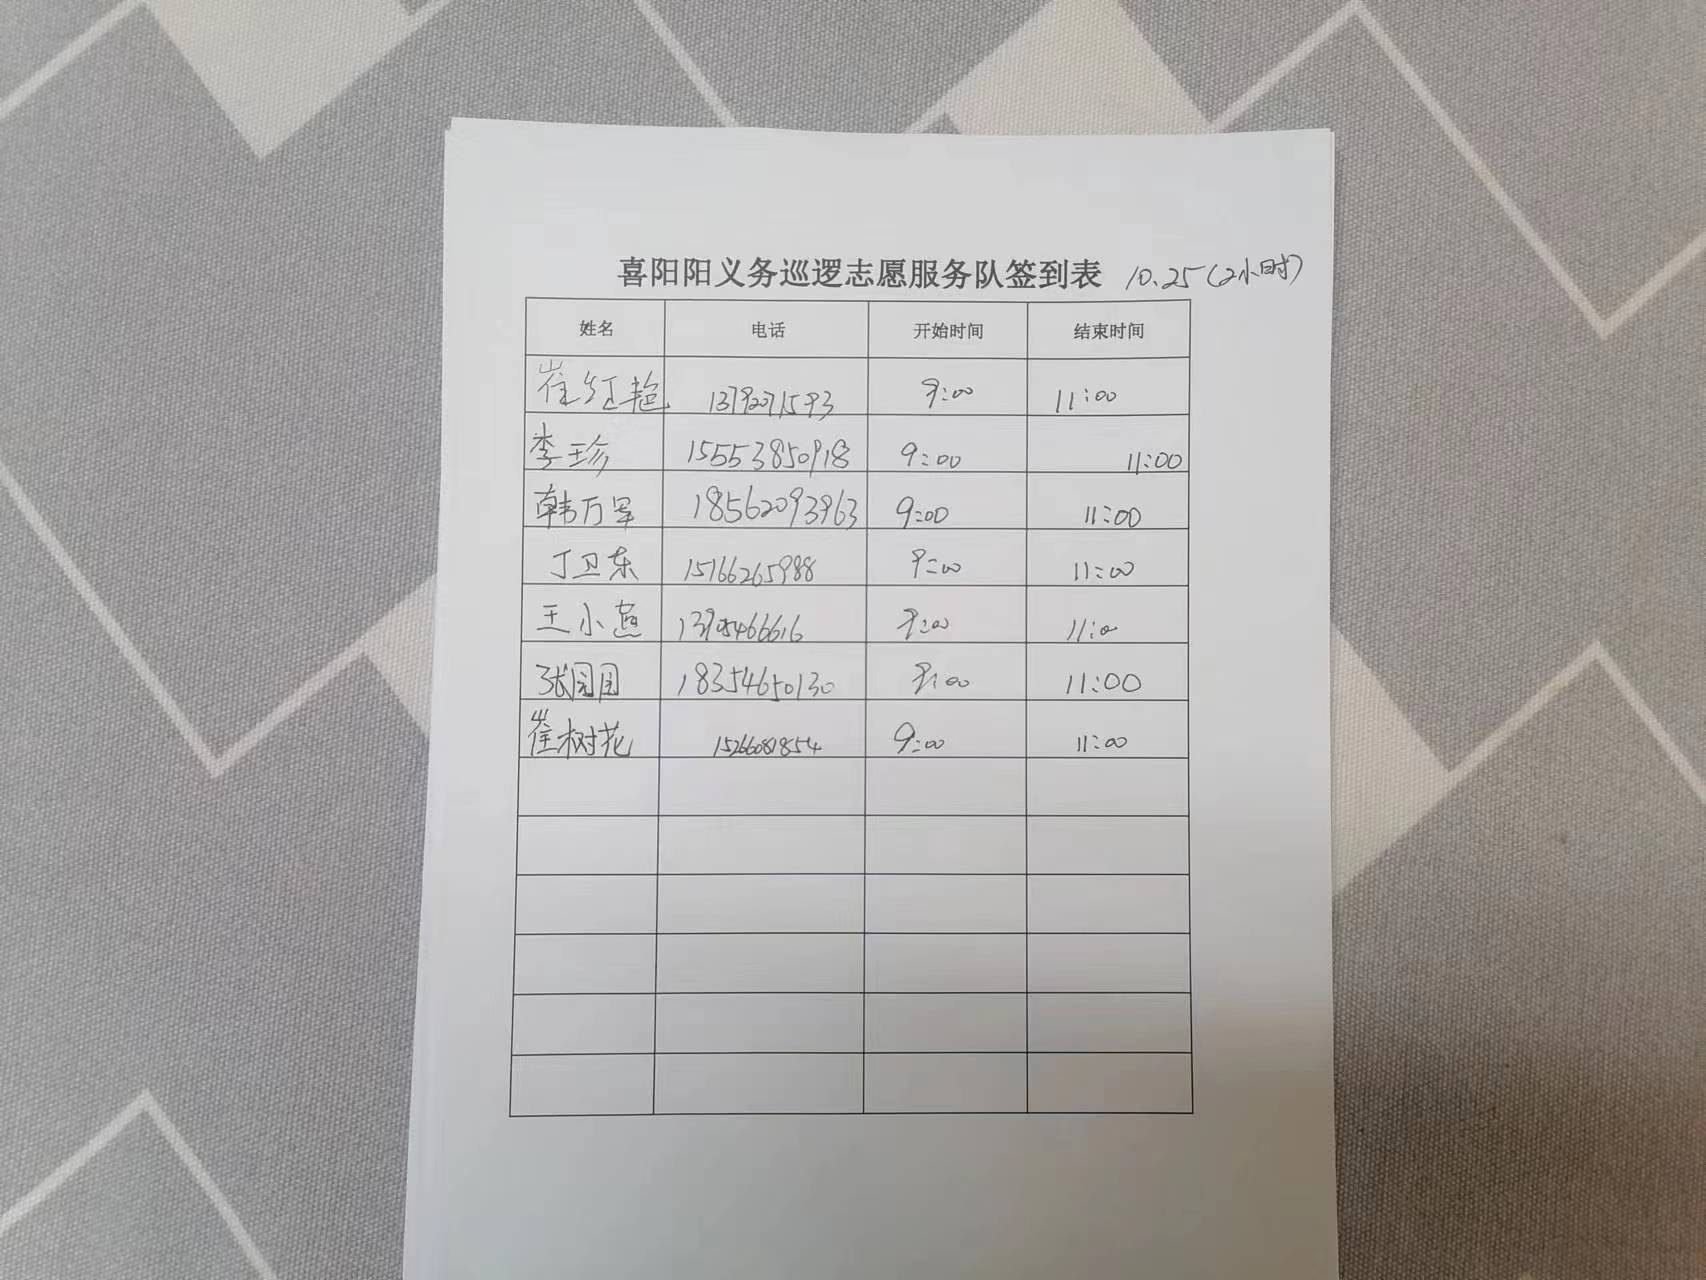 喜阳阳义务巡逻志愿服务队签到表 10.25(2小时)
姓名 电话 开始时间 结束时间
崔红艳 13792071593 9:00 11:00
李珍 15553850918 9:00 11:00
韩万军 18562093963 9:00 11:00
丁卫东 15166265988 9:00 11:00
王小燕 9:00 11:00
张园园 18354650130 9:00 11:00
崔树花 15266081854 9:00 11:00